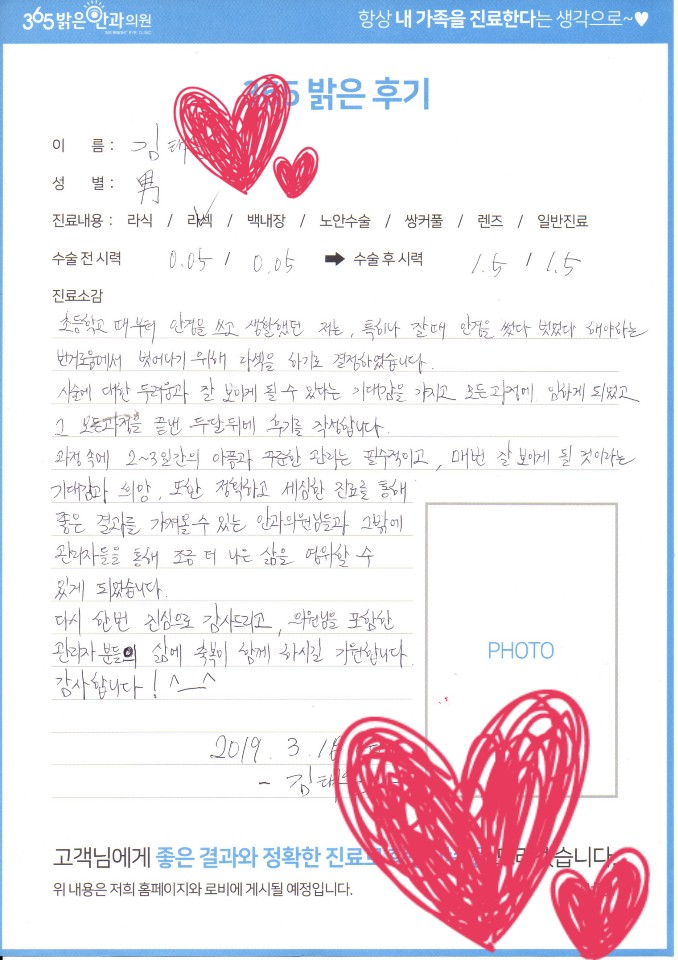 365 밝은 안과의원
항상 내 가족을 진료한다는 생각으로~♥
365 밝은 후기
이 름 : 김태
성 별 : 男
진료내용 : 라식 / 라섹 / 백내장 / 노안수술 / 쌍커풀 / 렌즈 / 일반진료
수술 전 시력 0.05 / 0.05 ➡ 수술 후 시력 1.5 / 1.5
진료소감
초등학교 때부터 안경을 쓰고 생활했던 저는, 특히나 잘때 안경을 썼다 벗었다 해야하는
번거로움에서 벗어나기 위해 라섹을 하기로 결정하였습니다.
시술에 대한 두려움과 잘 보이게 될 수 있다는 기대감을 가지고 모든과정에 임하게 되었고
그 모든과정을 끝낸 두달뒤에 후기를 작성합니다.
과정 속에 2~3일간의 아픔과 꾸준한 관리는 필수적이고, 매번 잘 보이게 될 것이라는
기대감과 희망, 또한 정확하고 세심한 진료를 통해
좋은 결과를 가져올 수 있는 안과의원님들과 그밖에
관리자들을 통해 조금 더 나은 삶을 영위할 수
있게 되었습니다.
다시 한번 진심으로 감사드리고, 의원님을 포함한
관리자 분들의 삶에 축복이 함께 하시길 기원합니다.
감사합니다! ^__^
PHOTO
2019. 3. 18
- 김태
고객님에게 좋은 결과와 정확한 진료로 습니다.
위 내용은 저희 홈페이지와 로비에 게시될 예정입니다.